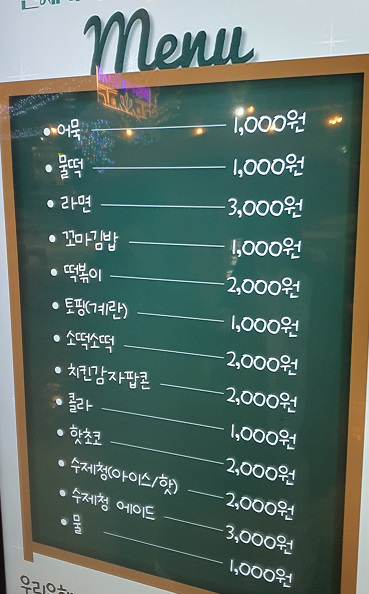 Menu
어묵 1,000원
물떡 1,000원
라면 3,000원
꼬마김밥 1,000원
떡볶이 2,000원
토핑(계란) 1,000원
소떡소떡 2,000원
치킨감자팝콘 2,000원
콜라 1,000원
핫초코 2,000원
수제청(아이스/핫) 2,000원
수제청 에이드 3,000원
물 1,000원